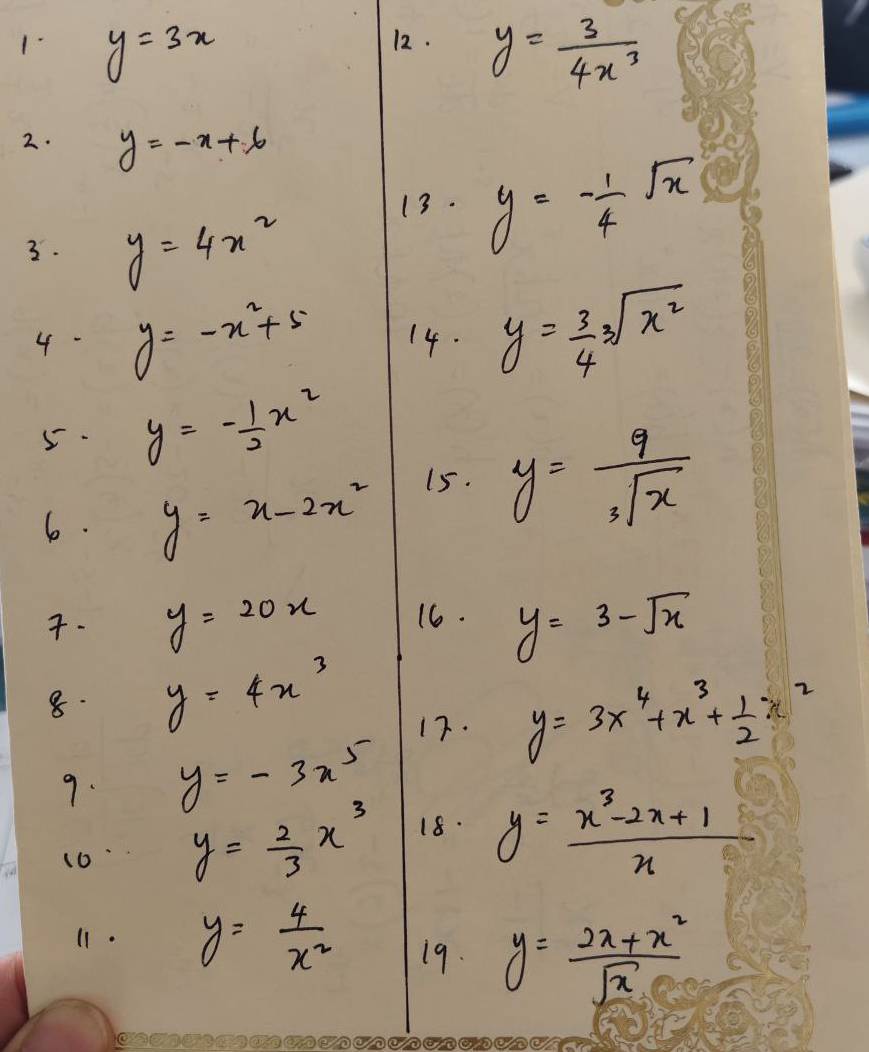 1. y = 3x
2. y = -x + 6
3. y = 4x²
4. y = -x² + 5
5. y = -1/2 x²
6. y = x - 2x²
7. y = 20x
8. y = 4x³
9. y = -3x⁵
10. y = 2/3 x³
11. y = 4/x²
12. y = 3/(4x³)
13. y = -1/4 √x
14. y = 3/4 ∛(x²)
15. y = 9/∛x
16. y = 3 - √x
17. y = 3x⁴ + x³ + 1/2 x²
18. y = (x³ - 2x + 1)/x
19. y = (2x + x²)/√x